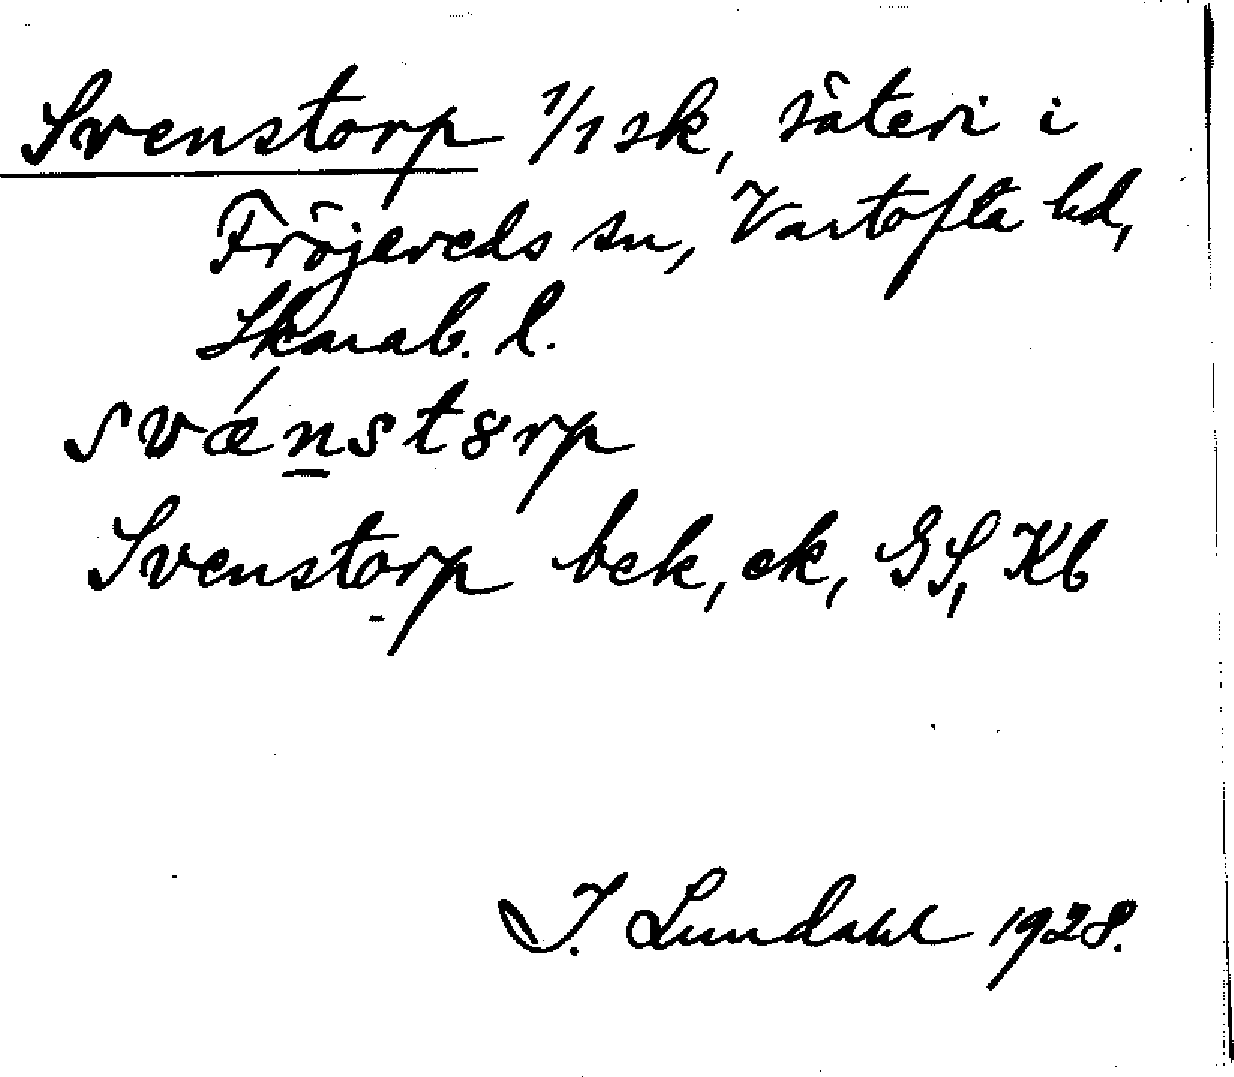 Svenstorp 1/1 sk, säteri i
Fröjereds sn, Vartofta hd,
Skarab. l.
svǽnstȣrp
Svenstorp bek, ek, GS, Kb
I. Lundahl 1928.